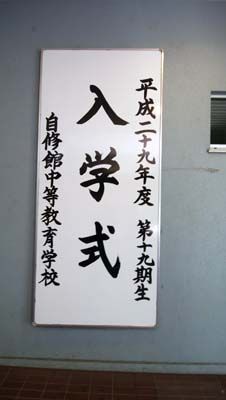 平成二十九年度 第十九期生
入学式
自修館中等教育学校